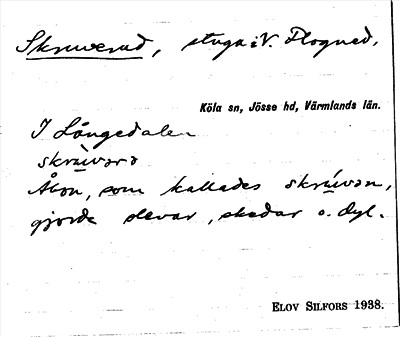 Skruverud, stuga i V. Flogned.
Köla sn, Jösse hd, Värmlands län.
I Långedalen
skrùvərə
Åbon, som kallades skrúvan,
gjorde slevar, skedar o. dyl.
ELOV SILFORS 1938.